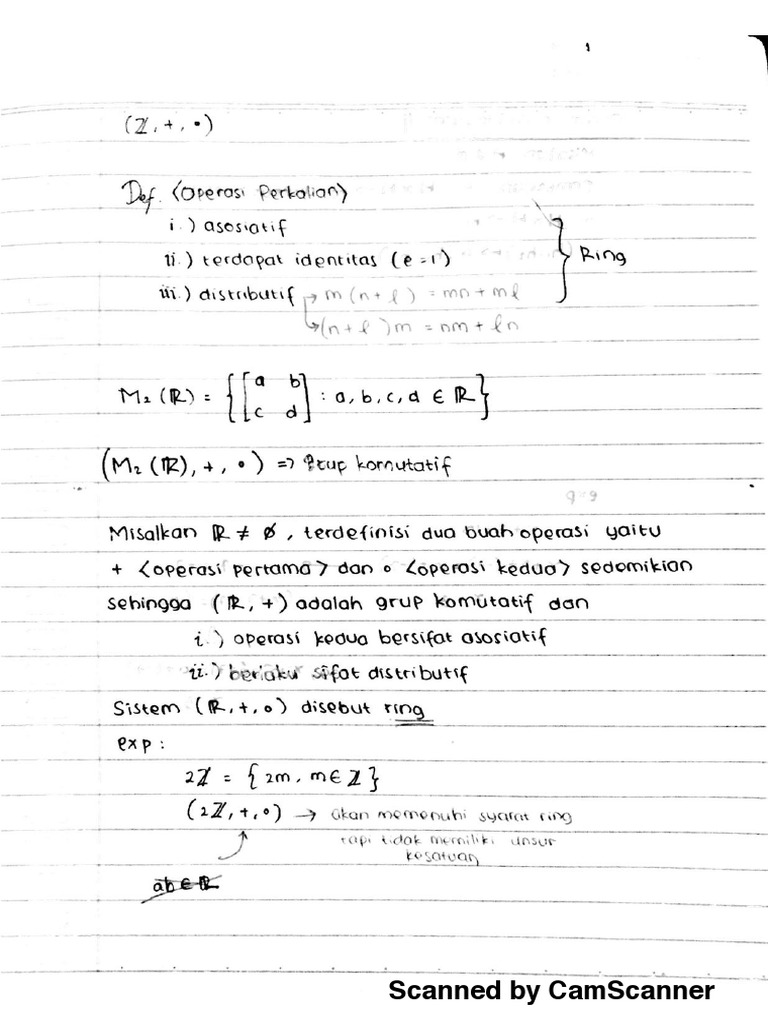 1
(ℤ, +, •)
Def. <Operasi Perkalian>
i.) asosiatif
ii.) terdapat identitas (e=1)
iii.) distributif → m(n+ℓ) = mn+mℓ
↳ (n+ℓ)m = nm+ℓn
} Ring
M₂(ℝ) = { [a b c d] : a, b, c, d ∈ ℝ }
(M₂(ℝ), +, •) => grup komutatif
Misalkan ℝ ≠ ∅, terdefinisi dua buah operasi yaitu
+ <operasi pertama> dan ∘ <operasi kedua> sedemikian
sehingga (ℝ, +) adalah grup komutatif dan
i.) operasi kedua bersifat asosiatif
ii.) berlaku sifat distributif
Sistem (ℝ, +, ∘) disebut ring
exp:
2ℤ = {2m, m∈ℤ}
(2ℤ, +, ∘) → akan memenuhi syarat ring
tapi tidak memiliki unsur
kesatuan
ab ∈ ℝ
Scanned by CamScanner